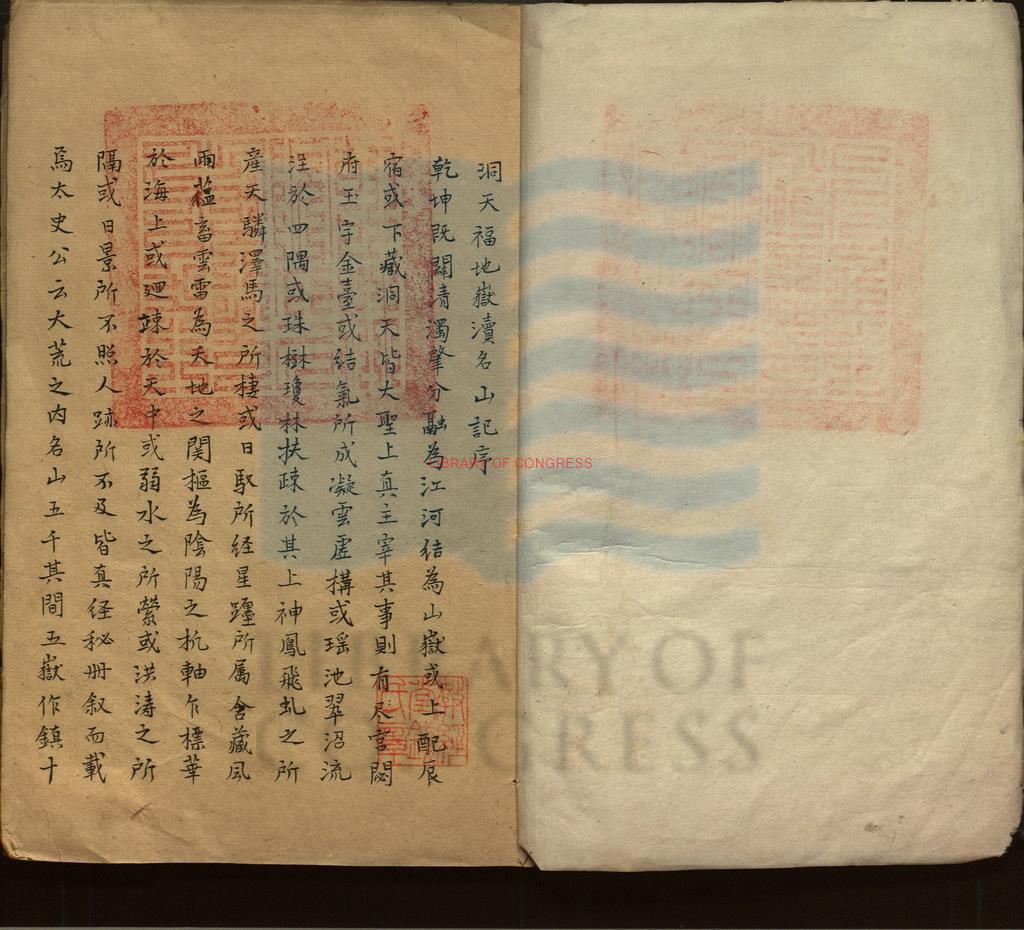 洞天福地嶽瀆名山記序
乾坤既闢清濁肇分融為江河結為山嶽或上配辰
宿或下藏洞天皆大聖上真主宰其事則有灵宫閟
府玉宇金臺或結氣所成凝雲虚構或瑶池翠沼流
注於四隅或珠樹瓊林扶疎於其上神鳳飛虬之所
產天驎澤馬之所棲或日馭所経星躔所属含藏風
雨蘊畜雲雷為天地之関樞為陰陽之机軸乍標華
於海上或廻疎於天中或弱水之所縈或洪涛之所
隔或日景所不照人跡所不及皆真経秘册叙而載
焉太史公云大荒之内名山五千其間五嶽作鎮十
LIBRARY OF CONGRESS
LIBRARY OF
CONGRESS